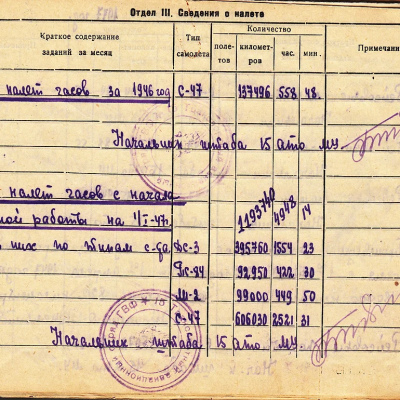 Отдел III. Сведения о налете
Краткое содержание заданий за месяц
Тип самолета
Количество
полетов
километров
час.
мин.
Примечани
налет часов за 1946 год С-47 137496 558 48.
Начальник штаба 15 ато МУ
налет часов с начала
ной работы на 1/I-47г. 1193740 4948 14
них по типам с-та ДС-3 395760 1554 23
92951 422 30
99000 449 50
С-47 606030 2521 31
Начальник штаба 15 ато МУ